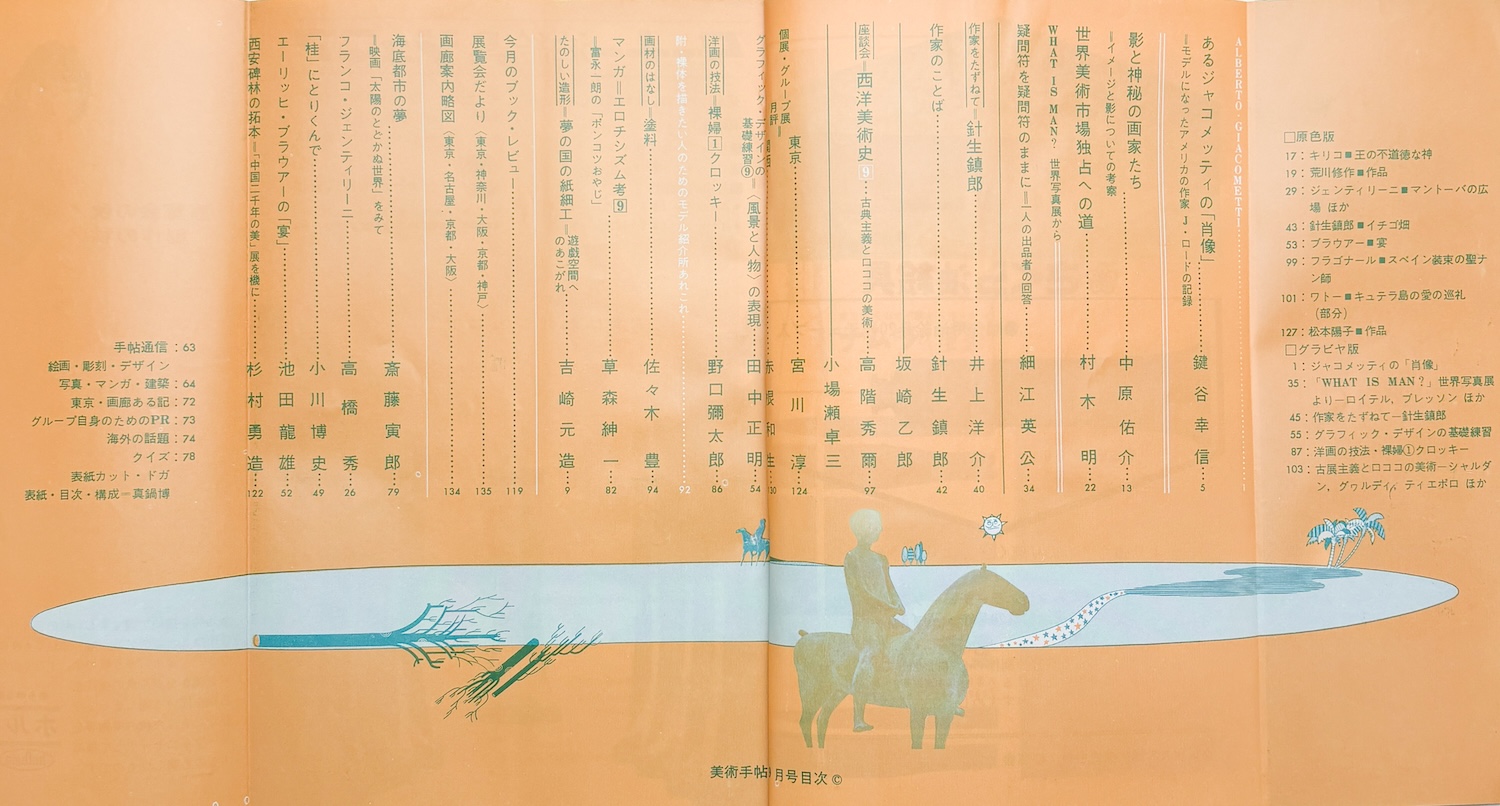 ALBERTO・GIACOMETTI
あるジャコメッティの「肖像」………鍵谷幸信…5
=モデルになったアメリカの作家J・ロードの記録
影と神秘の画家たち………中原佑介…13
=イメージと影についての考察
世界美術市場独占への道………村木明…22
WHAT IS MAN? 世界写真展から
疑問符を疑問符のままに=一人の出品者の回答………細江英公…34
作家をたずねて=針生鎮郎………井上洋介…40
作家のことば………針生鎮郎…42
坂崎乙郎
座談会=西洋美術史9…古典主義とロココの美術…高階秀爾…97
小場瀬卓三
個展・グループ展月評=東京………宮川淳…124
グラフィック・デザインの基礎練習⑨=〈風景と人物〉の表現…田中正明…54
洋画の技法=裸婦1クロッキー………野口彌太郎…86
附・裸体を描きたい人のためのモデル紹介所あれこれ………92
画材のはなし=塗料………佐々木豊…94
マンガ=エロチシズム考9………草森紳一…82
=富永一朗の「ポンコツおやじ」
たのしい造形=夢の国の紙細工=遊戯空間へのあこがれ…吉崎元造…9
今月のブック・レビュー………119
展覧会だより〈東京・神奈川・大阪・京都・神戸〉………135
画廊案内略図〈東京・名古屋・京都・大阪〉………134
海底都市の夢………斎藤寅郎…79
=映画「太陽のとどかぬ世界」をみて
フランコ・ジェンティリーニ………高橋秀…26
「桂」にとりくんで………小川博史…49
エーリッヒ・ブラウアーの「宴」………池田龍雄…52
西安碑林の拓本=「中国二千年の美」展を機に………杉村勇造…122
□原色版
17：キリコ■王の不道徳な神
19：荒川修作■作品
29：ジェンティリーニ■マントーバの広
場 ほか
43：針生鎮郎■イチゴ畑
53：ブラウアー■宴
99：フラゴナール■スペイン装束の聖ナ
ン師
101：ワトー■キュテラ島の愛の巡礼
（部分）
127：松本陽子■作品
□グラビヤ版
1：ジャコメッティの「肖像」
35：「WHAT IS MAN？」世界写真展
より―ロイテル，ブレッソン ほか
45：作家をたずねて―針生鎮郎
55：グラフィック・デザインの基礎練習
87：洋画の技法・裸婦①クロッキー
103：古展主義とロココの美術―シャルダ
ン，グヮルディ，ティエポロ ほか
手帖通信：63
絵画・彫刻・デザイン
写真・マンガ・建築：64
東京・画廊ある記：72
グループ自身のためのPR：73
海外の話題：74
クイズ：78
表紙カット・ドガ
表紙・目次・構成＝真鍋博
美術手帖 月号目次©